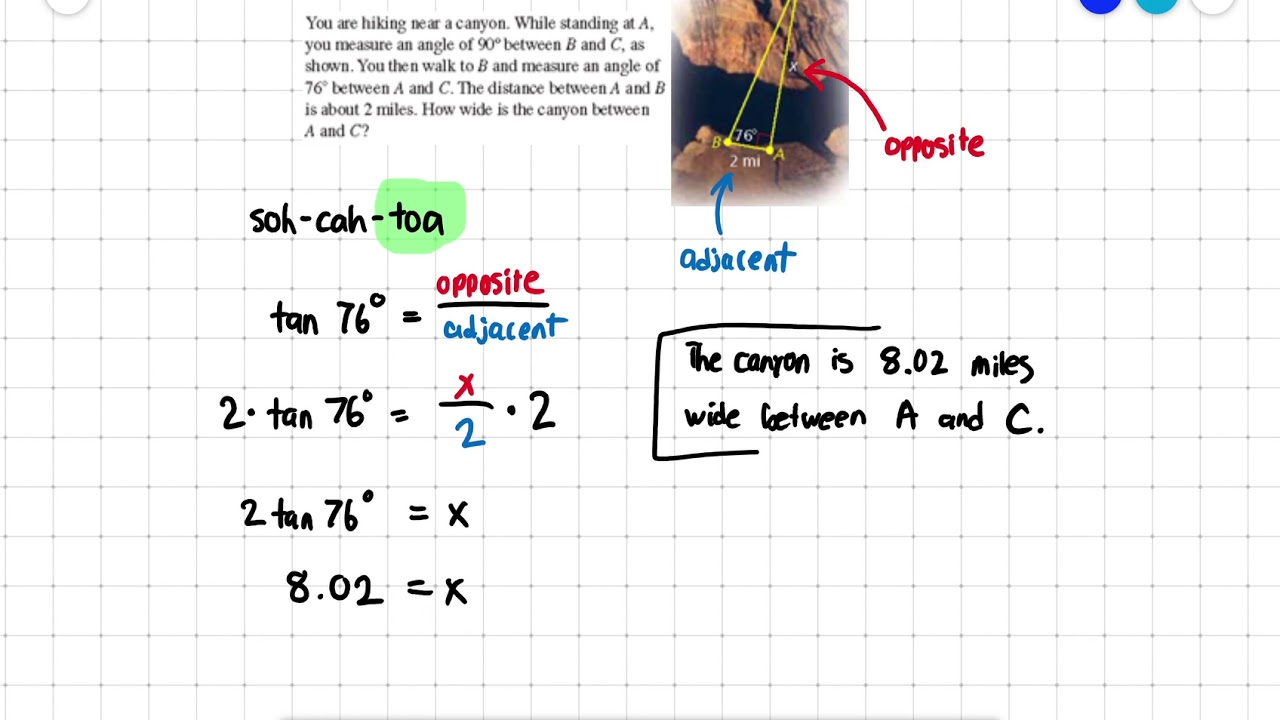 You are hiking near a canyon. While standing at A,
you measure an angle of 90° between B and C, as
shown. You then walk to B and measure an angle of
76° between A and C. The distance between A and B
is about 2 miles. How wide is the canyon between
A and C?
x
B 76° A
2 mi
opposite
adjacent
soh-cah-toa
tan 76° = opposite / adjacent
2 · tan 76° = x / 2 · 2
2 tan 76° = x
8.02 = x
The canyon is 8.02 miles
wide between A and C.